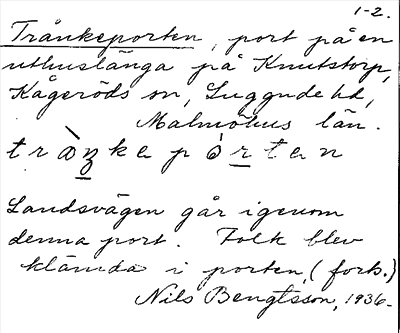 1-2.
Trånkeporten, port på en
uthuslänga på Knutstorp,
Kågeröds sn, Luggude hd,
Malmöhus län.
tràŋkepòrten
Landsvägen går igenom
denna port. Folk blev
klämda i porten, (forts.)
Nils Bengtsson, 1936-